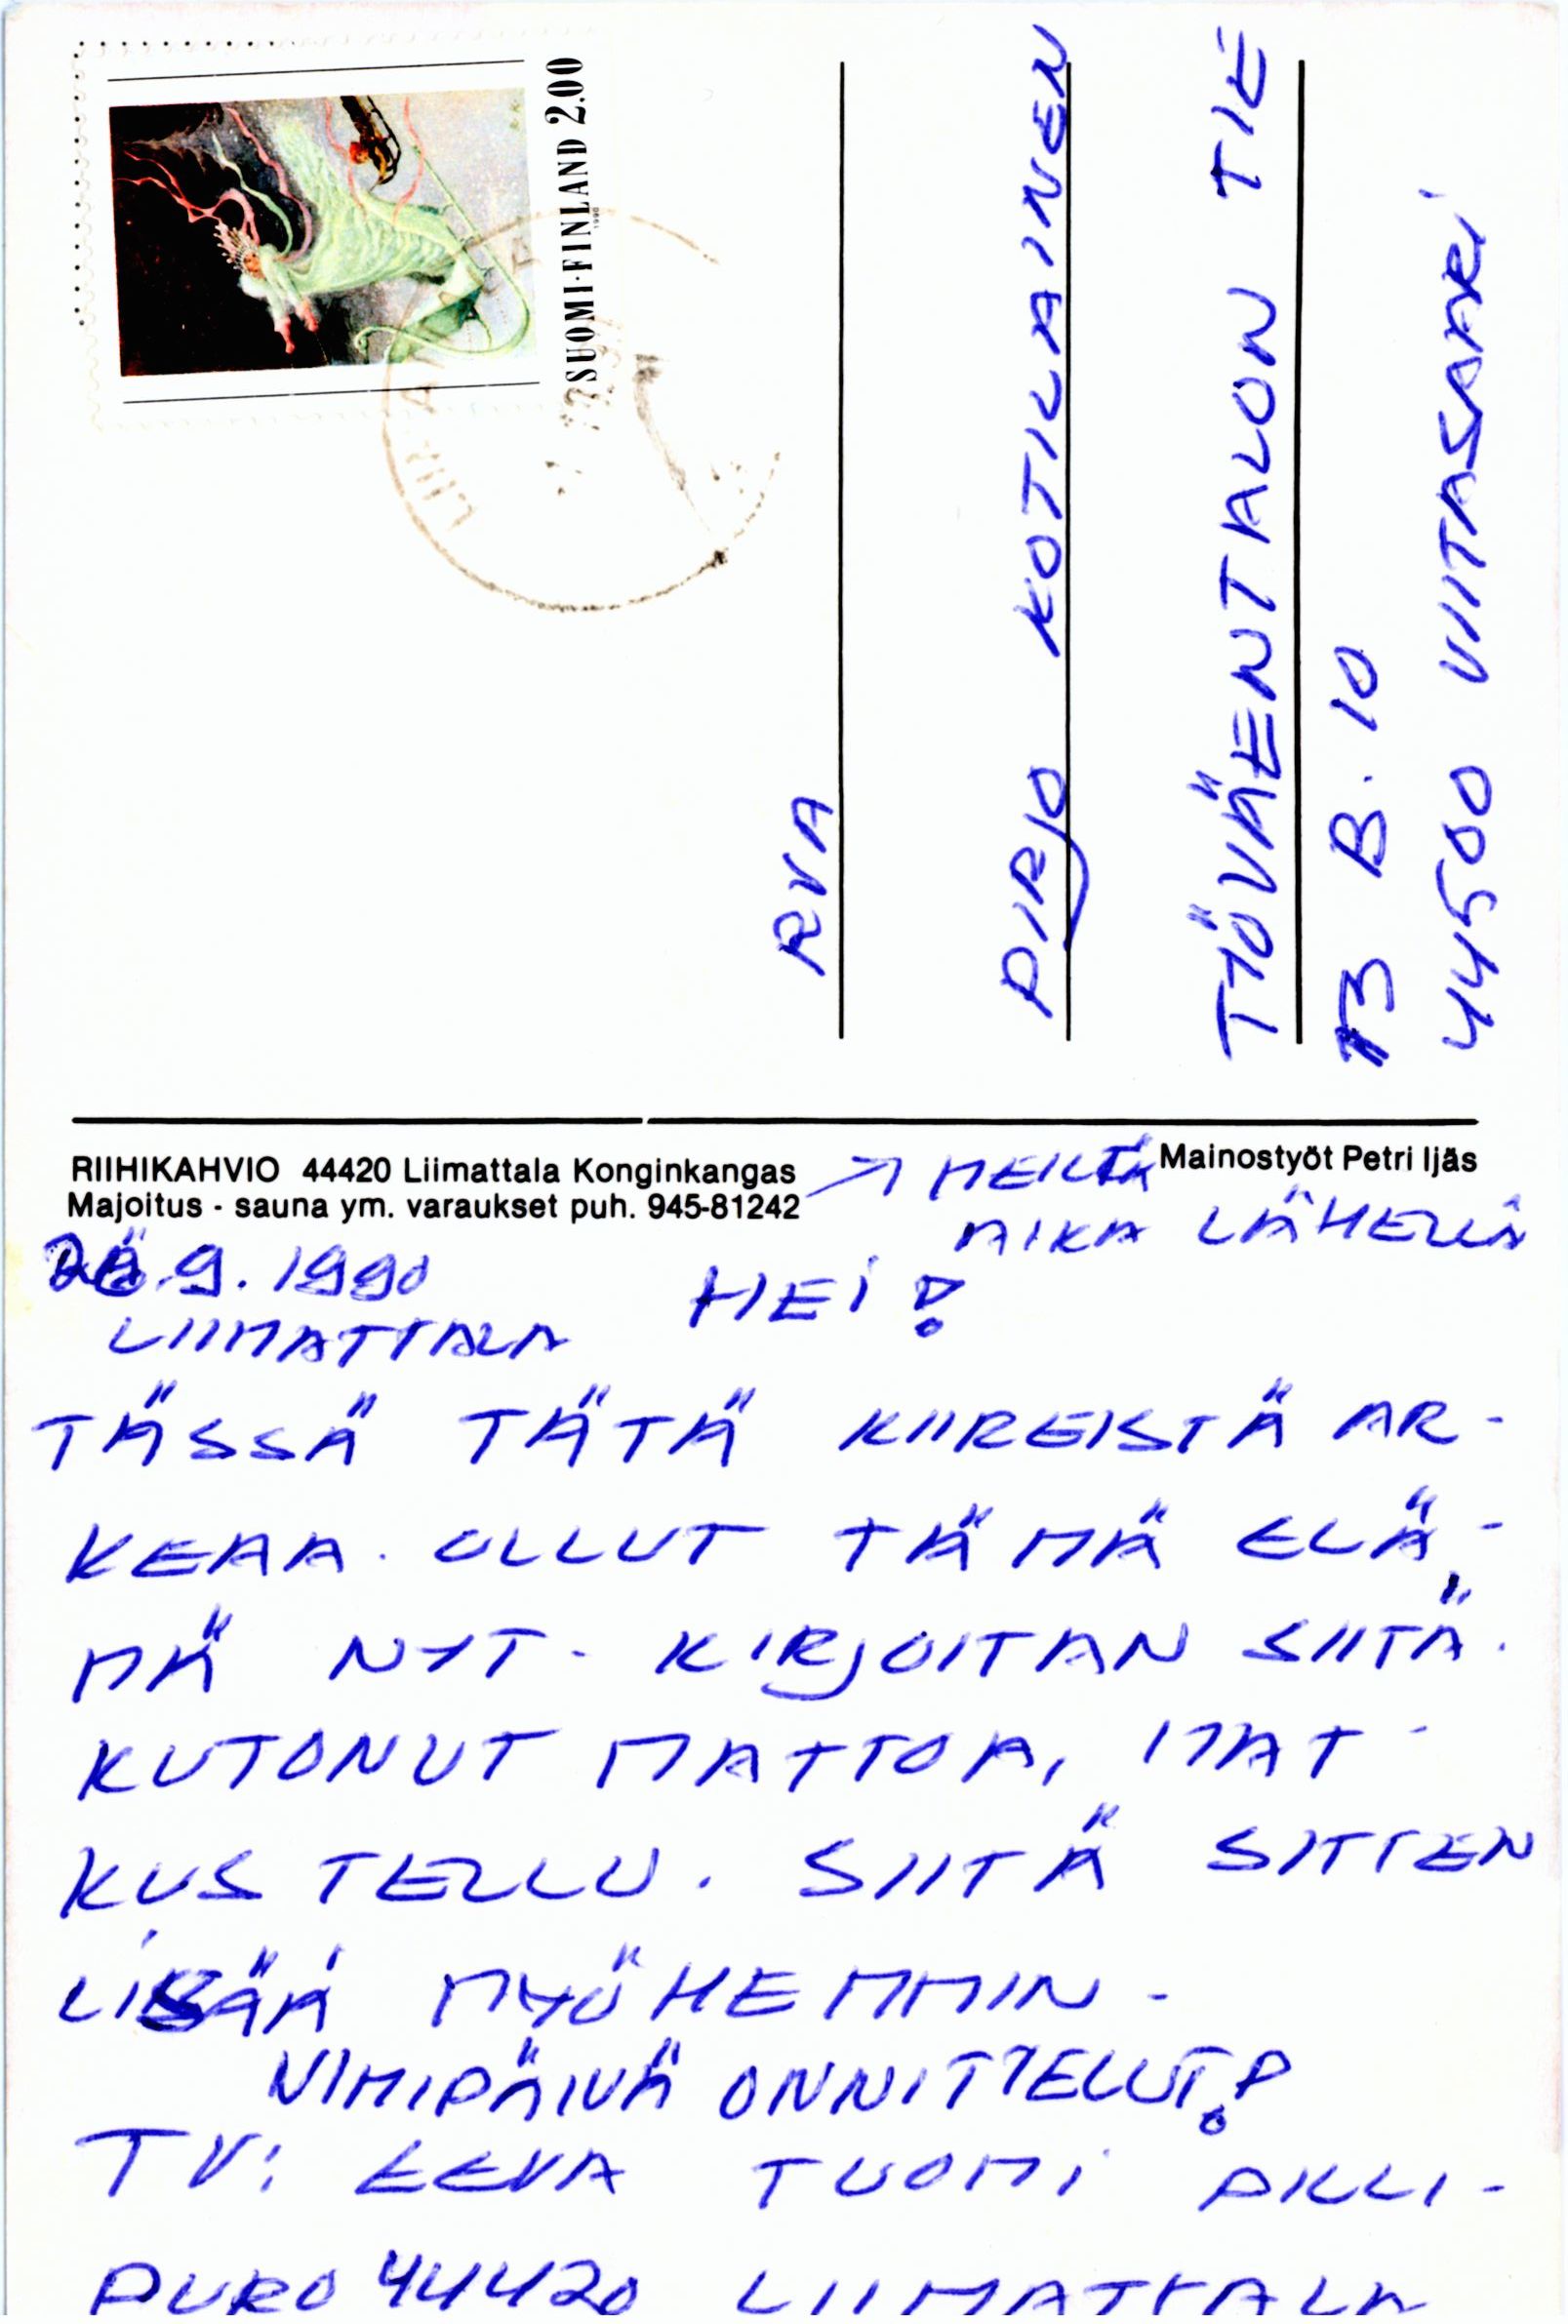 SUOMI·FINLAND 2.00
1990
RVA
PIRJO KOTILAINEN
TYÖVÄENTALON TIE
13 B.10
44500 VIITASAARI
RIIHIKAHVIO 44420 Liimattala Konginkangas
Majoitus - sauna ym. varaukset puh. 945-81242
Mainostyöt Petri Ijäs
↗ MEILTÄ
AIKA LÄHELLÄ
.9.1990
LIIMATTALA
HEI!
TÄSSÄ TÄTÄ KIIREISTÄ AR-
KEAA. OLLUT TÄMÄ ELÄ-
MÄ NYT. KIRJOITAN SIITÄ.
KUTONUT MATTOA, MAT-
KUSTELLU. SIITÄ SITTEN
LISÄÄ MYÖHEMMIN.
NIMIPÄIVÄ ONNITTELUT!
TV: EEVA TUOMI PILLI-
PURO 44420 LIIMATTALA